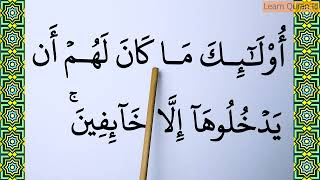 Learn Quran id
أُوْلَٰٓئِكَ مَا كَانَ لَهُمۡ أَن
يَدۡخُلُوهَآ إِلَّا خَآئِفِينَۚ